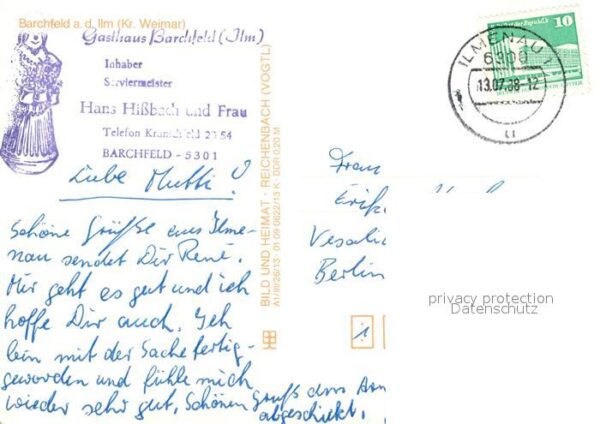 Barchfeld a. d. Ilm (Kr. Weimar)
Gasthaus Barchfeld (Ilm)
Inhaber
Serviermeister
Hans Hißbach und Frau
Telefon Kranichfeld 2354
BARCHFELD - 5301
BILD UND HEIMAT · REICHENBACH (VOGTL)
A1/III/26/13 · 01 09 0622/13 K · DDR 0,20 M
10
ILMENAU 1
6300
13.07.88-12
Liebe Mutti!
Schöne Grüße aus Ilme-
nau sendet Dir René.
Mir geht es gut und ich
hoffe Dir auch. Ich
bin mit der Sache fertig-
geworden und fühle mich
wieder sehr gut. Schönen Gruß
abgeschickt.
Frau
Erik
Vesali
Berlin
1
privacy protection
Datenschutz